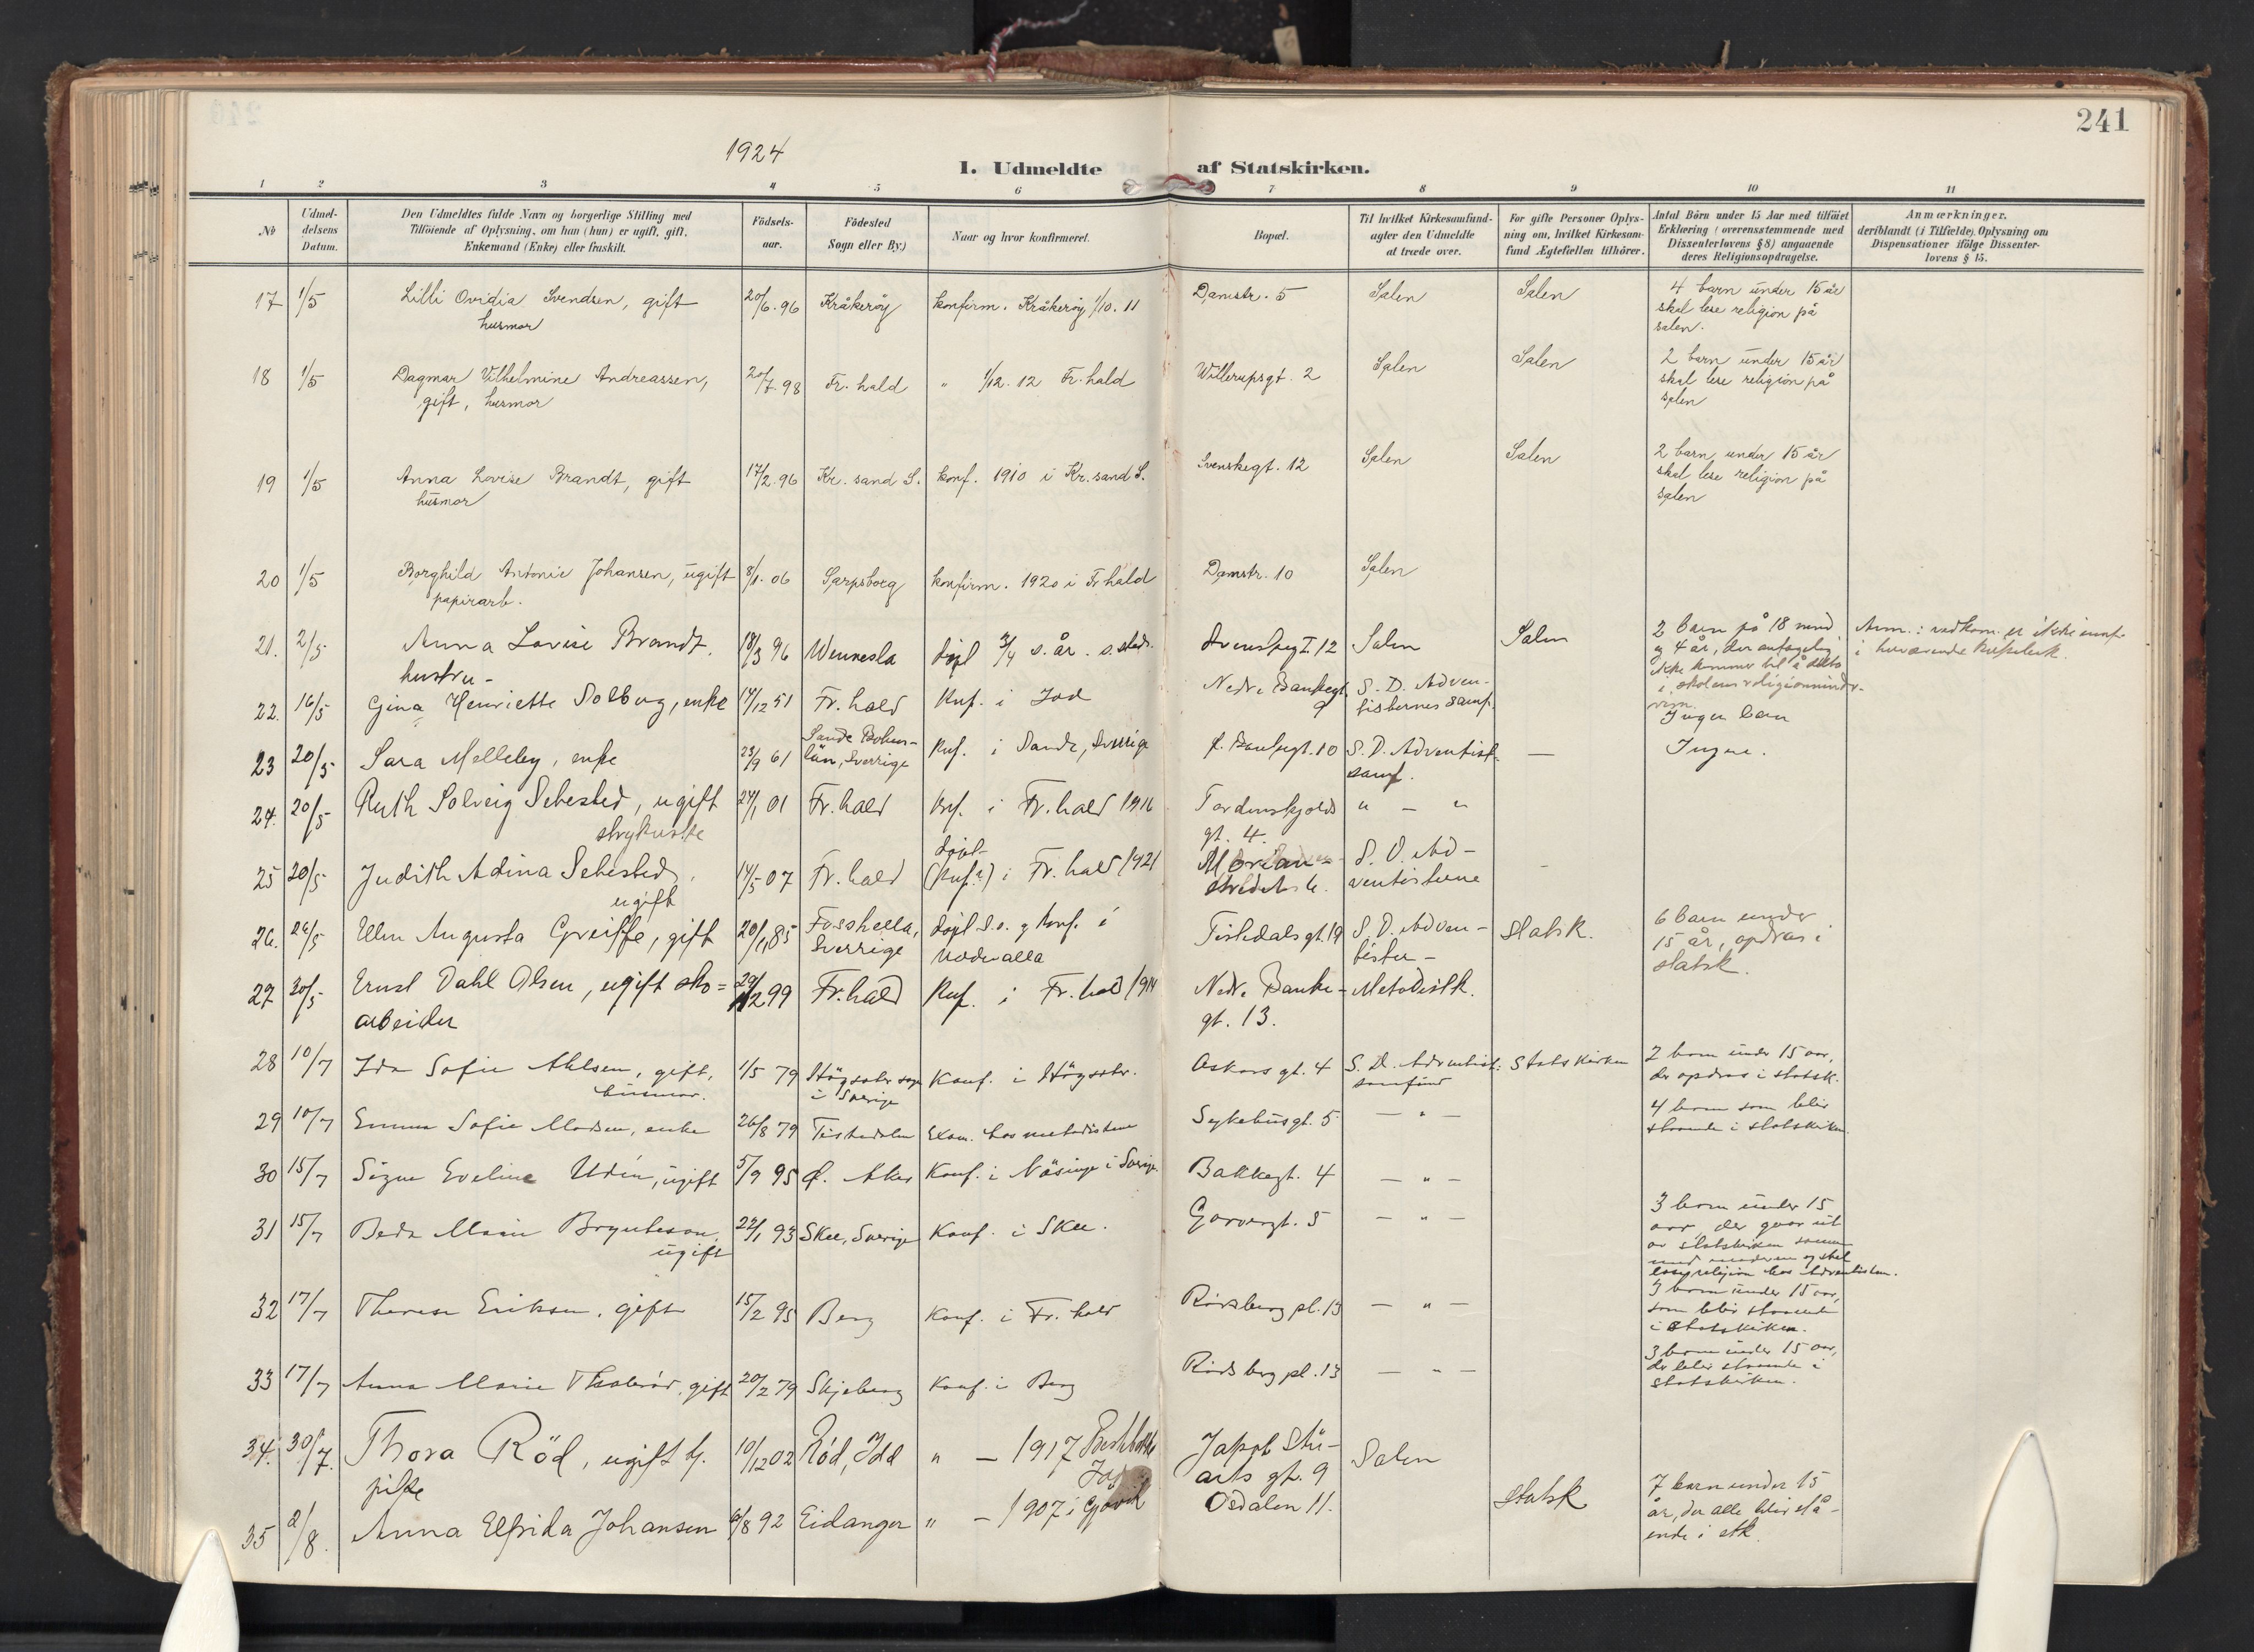 241
1924
1. Udmeldte af Statskirken.
1 2 3 4 5 6 7 8 9 10 11
No
Udmel-
delsens
Datum.
Den Udmeldtes fulde Navn og borgerlige Stilling med
Tilföiende af Oplysning, om han (hun) er ugift, gift,
Enkemand (Enke) eller fraskilt.
Födsels-
aar.
Födested
Sogn eller By.)
Naar og hvor konfirmeret.
Bopæl.
Til hvilket Kirkesamfund-
agter den Udmeldte
at træde over.
For gifte Personer Oplys-
ning om, hvilket Kirkesam-
fund Ægtefællen tilhörer.
Antal Börn under 15 Aar med tilföiet
Erklæring (overensstemmende med
Dissenterlovens § 8) angaaende
deres Religionsopdragelse.
Anmærkninger,
deriblandt (i Tilfælde) Oplysning om
Dispensationer ifölge Dissenter-
lovens § 15.
17 1/5 Lilli Ovidia Svendsen, gift 20/6.96 Kråkeröy konfirm. Kråkeröy 1/10.11 Damstr. 5 Salen Salen 4 barn under 15 år
husmor skal lese religion på
salen.
18 1/5 Dagmar Vilhelmine Andreassen, 20/7.98 Fr. hald " 1/12.12 Fr. hald Willerupsgt. 2 Salen Salen 2 barn under 15 år
gift, husmor skal lese religion på
salen
19 1/5 Anna Lovise Brandt, gift 17/2.96 Kr. sand S. konf. 1910 i Kr. sand S. Svenskegt. 12 Salen Salen 2 barn under 15 år
husmor skal lese religion på
salen
20 1/5 Borghild Antonie Johansen, ugift 8/1.06 Sarpsborg konfirm. 1920 i Fr hald Damstr. 10 Salen
papirarb.
21. 2/5 Anna Lovise Brandt, 18/3 96 Wennesla döpt 3/4 s. år. s. sted. Svenskegt. 12 Salen Salen 2 barn på 18 mnd Anm.:
hustru - og 4 år, der antagelig
ikke kommer til å delta
i skolens religionsunder-
visn.
22. 16/5 Gina Henriette Solberg, enke 14/12 51 Fr. hald Knf. i Idd Nedre Bankegt. 9 S. D. Adven- Ingen barn
tisternes samf.
23 20/5 Sara Melleby, enke 23/9 61 Sande Bohus- Knf. i Sande, Sverige 10 S. D. Adventist- — Ingen.
län, Sverrige samf.
24. 20/5 Ruth Solveig Sehested, ugift 24/1 01 Fr. hald Knf. i Fr. hald 1916 Tordenskjolds " — "
strykerske gt. 4.
25 20/5 Judith Adina Sehested, 14/5 07 Fr. hald döpt (Knf.?) i Fr. hald 1921 S. D. Ad- -
ugift ventisterne
26. 26/5 Elen Augusta Greiffe, gift 20/1 85 Fosshella, döpt s. s. g konf. i Tistedalsgt. 19 S. D. Adven- Statsk. 6 barn under
Sverrige tister - 15 år, opdras i
statsk.
27 30/5 Ernst Dahl Olsen, ugift sko= 29/12 99 Fr. hald Knf. i Fr. hald 1914 Nedre Banke- Metodistk.
arbeider gt. 13.
28 10/7 Ida Sofie Ahlsen, gift, 1/5 79 Högsäter sogn Konf. i Högsäter. Oskars gt. 4 S. D. Adventist- Statskirken 2 barn under 15 aar,
husmor. i Sverige samfund der opdras i statsk.
29 10/7 Emma Sofie Madsen, enke 26/8 79 Tistedalen Exam. hos metodistene Sykehusgt. 5 — " — 4 barn som blir
staaende i statskirken.
30 15/7 Signe Eveline Udén, ugift 5/9 95 Ø. Aker Konf. i Näsinge i Sverige Bakkegt. 4 — " —
31 15/7 Beda Marie Bryntesson, 22/1 93 Skee, Sverige Konf. i Skee. Garvergt. 5 — " — 3 barn under 15
ugift aar, der gaar ut
av statskirken sammen
med moderen og skal
religion hos Adventisten.
32 17/7 Therese Eriksen, gift 15/2 95 Berg Konf. i Fr. hald Rödsberg pl. 13 — " — 3 barn under 15 aar,
som blir staaende
i statskirken.
33 17/7 Anna Marie gift 20/2 79 Skjeberg Konf. i Berg Rödsberg pl. 13 — " — 3 barn under 15 aar,
der blir staaende i
statskirken.
34. 30/7. Thora Röd, ugift tj. 10/12 02 Röd, Idd " — 1917 Jakob Stu- Salen
pike Idd arts gt. 9
35 2/8. Anna Elfrida Johansen 6/8 92 Eidanger " — 1907 i Gjøvik Osdalen 11. Statsk 7 barn under 15
år, der alle blir stå-
ende i stk.